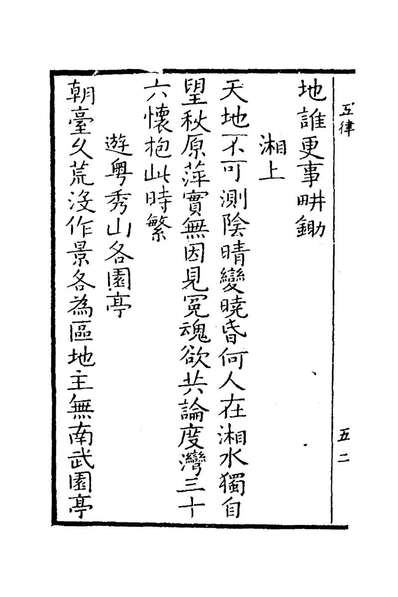 五律
五二
地誰更事畊鋤
湘上
天地不可測陰晴變曉昏何人在湘水獨自
望秋原萍實無因見冤魂欲共論度灣三十
六懷抱此時繁
遊粤秀山各園亭
朝臺久荒沒作景各為區地主無南武園亭